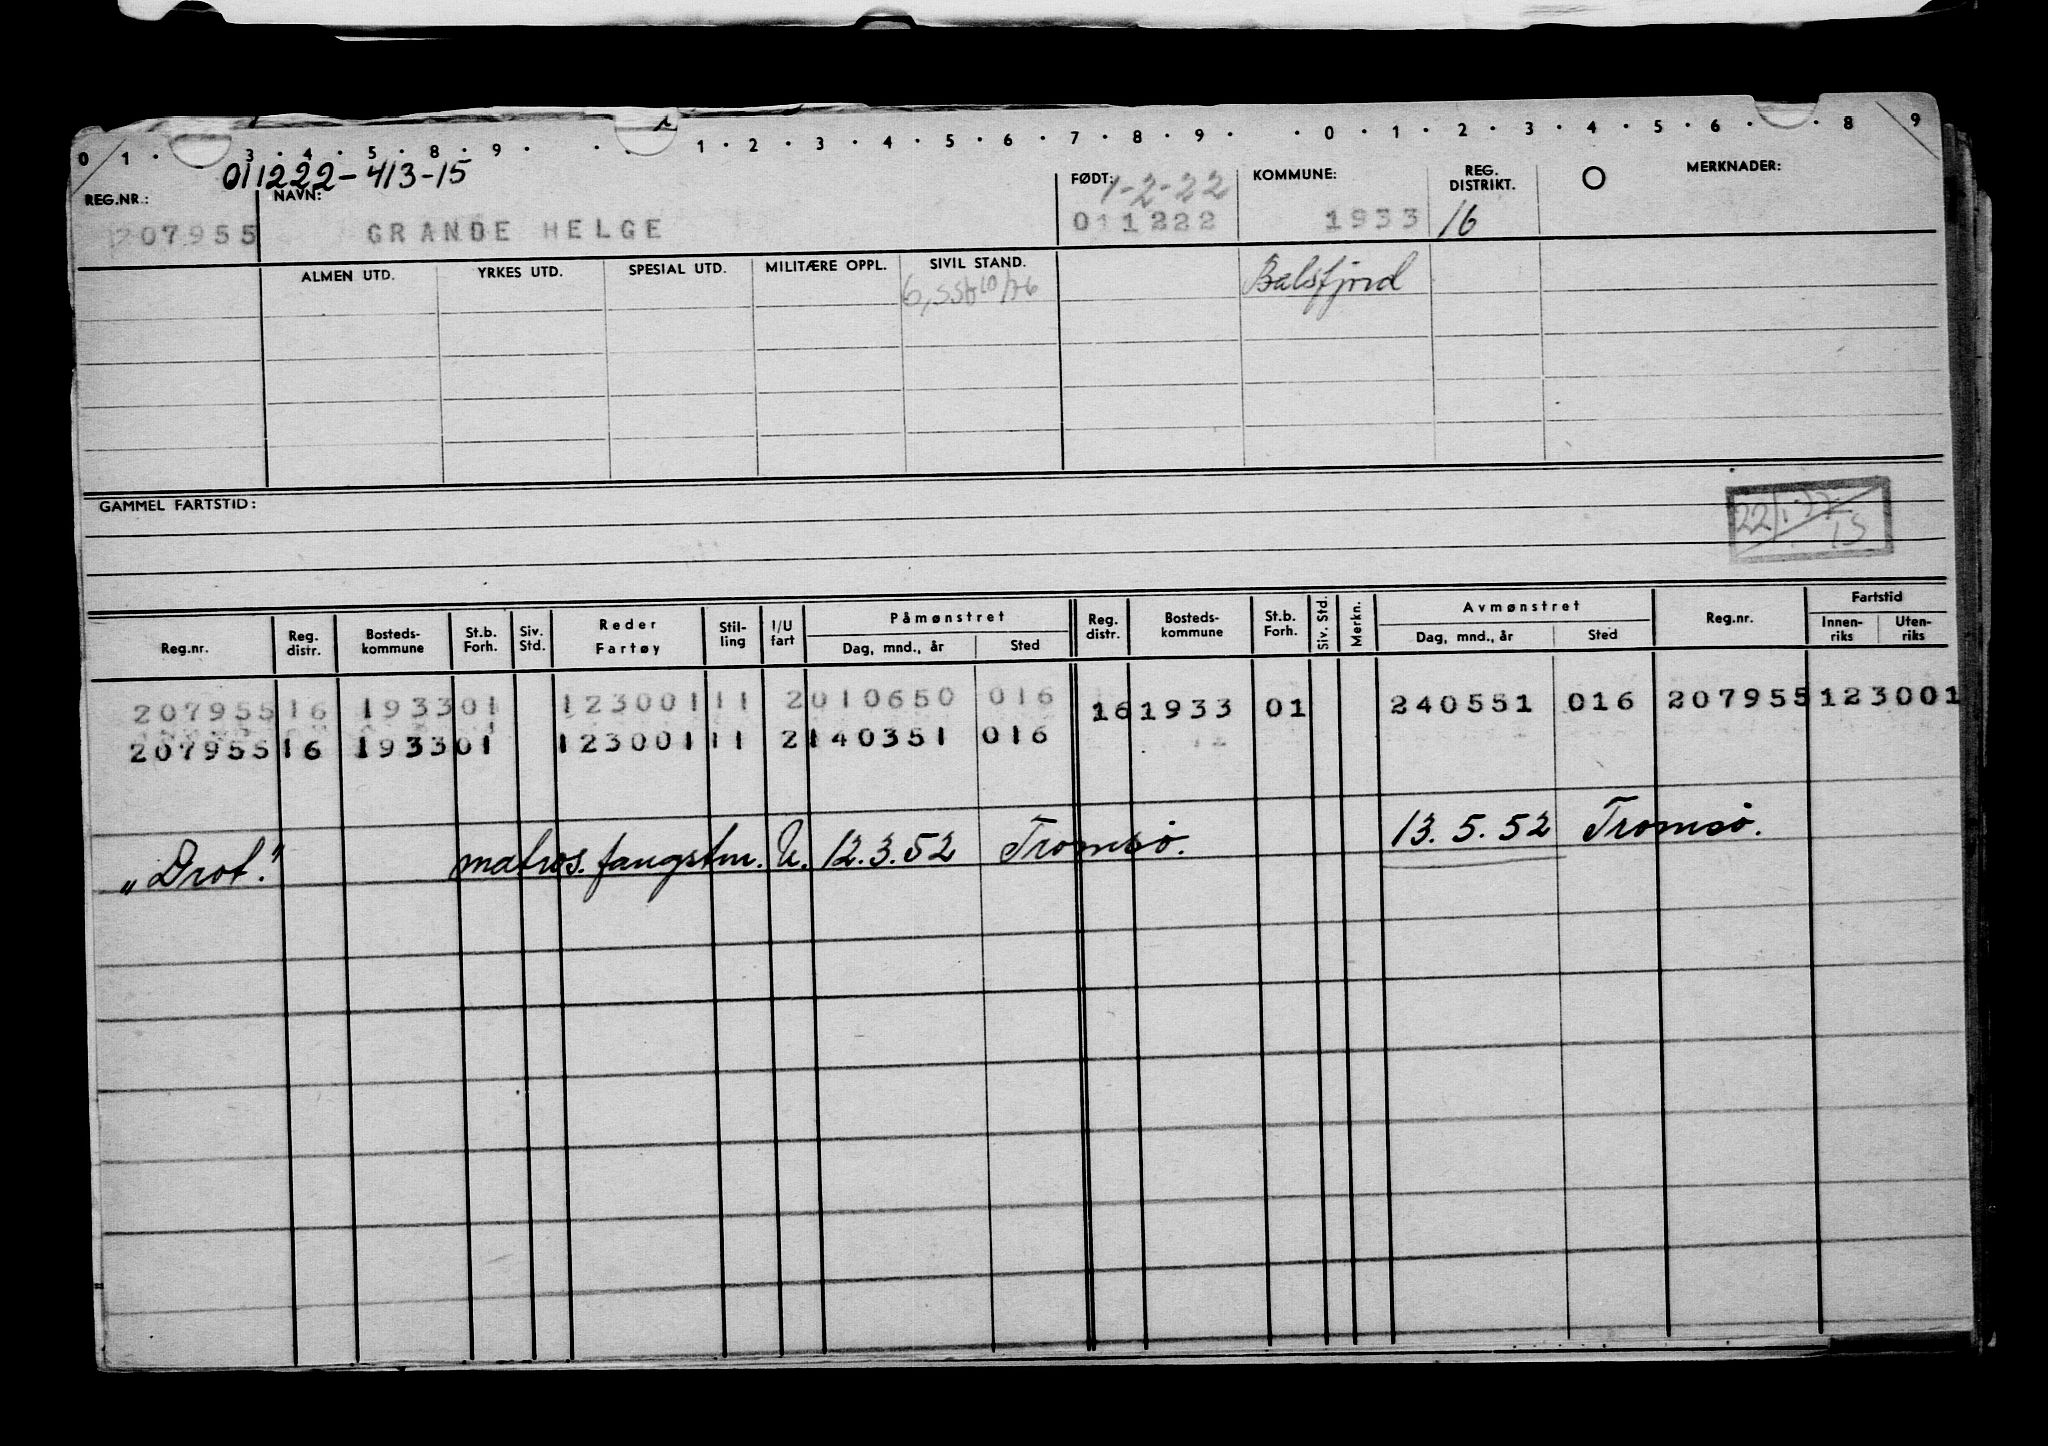 0 1 · 3 · 4 · 5 · 8 · 9 · · · 1 · 2 · 3 · 4 · 5 · 6 · 7 · 8 · 9 · · 0 · 1 · 2 · 3 · 4 · 5 · 6 · · 8 9
011222-413-15
REG.NR.: NAVN: FØDT: KOMMUNE: REG. DISTRIKT. O MERKNADER:
1-2-22
207955 GRANDE HELGE 011222 1933 16
ALMEN UTD. YRKES UTD. SPESIAL UTD. MILITÆRE OPPL. SIVIL STAND.
Balsfjord
GAMMEL FARTSTID:
Reg.nr. Reg. distr. Bosteds- kommune St.b. Forh. Siv. Std. Reder Fartøy Stil- ling I/U fart Påmønstret Dag, mnd., år Sted Reg. distr. Bosteds- kommune St.b. Forh. Siv. Std. Merkn. Avmønstret Dag, mnd., år Sted Reg.nr. Fartstid Innen- riks Uten- riks
207955 16 1933 01 123001 11 2 010650 016 16 1933 01 240551 016 207955 123001
207955 16 1933 01 123001 11 2 140351 016
"Drot." matros. fangstm. U. 12.3.52 Tromsø. 13.5.52 Tromsø.